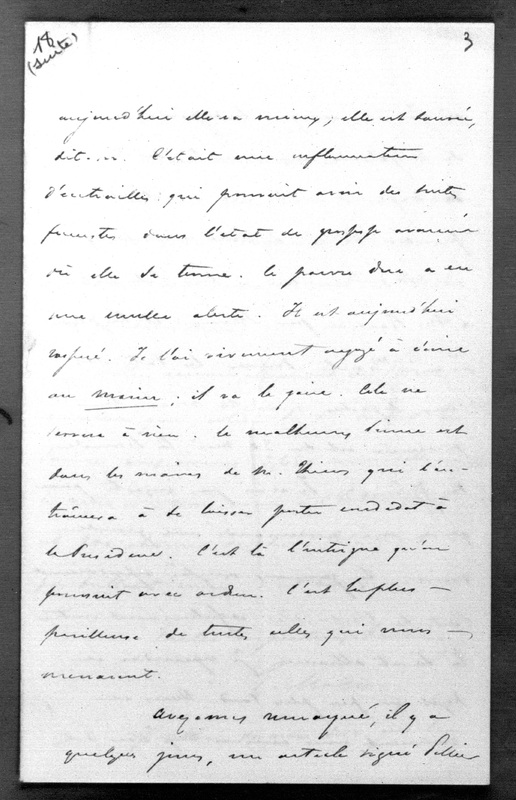 18
(suite)
3
aujourd'hui elle va mieux; elle est sauvée,
dit-on. C'était une inflammation
d'entrailles qui pouvait avoir des suites
funestes dans l'état de grossesse avancée
où elle se trouve. Le pauvre duc a eu
une cruelle alerte. Il est aujourd'hui
rassuré. Je l'ai vivement engagé à écrire
au marin; il va le faire. Cela ne
servira à rien. Le malheureux Prince est
dans les mains de M. Thiers qui l'en-
traînera à se laisser porter candidat à
la Présidence. C'est là l'intrigue qu'on
poursuit avec ardeur. C'est la plus
périlleuse de toutes celles qui nous
menacent.
Avez-vous remarqué, il y a
quelques jours, un article signé